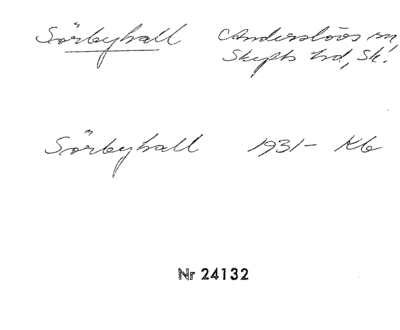 Sörbyhall Anderslövs sn,
Skytts hd, Sk.
Sörbyhall 1931- Kb
Nr 24132